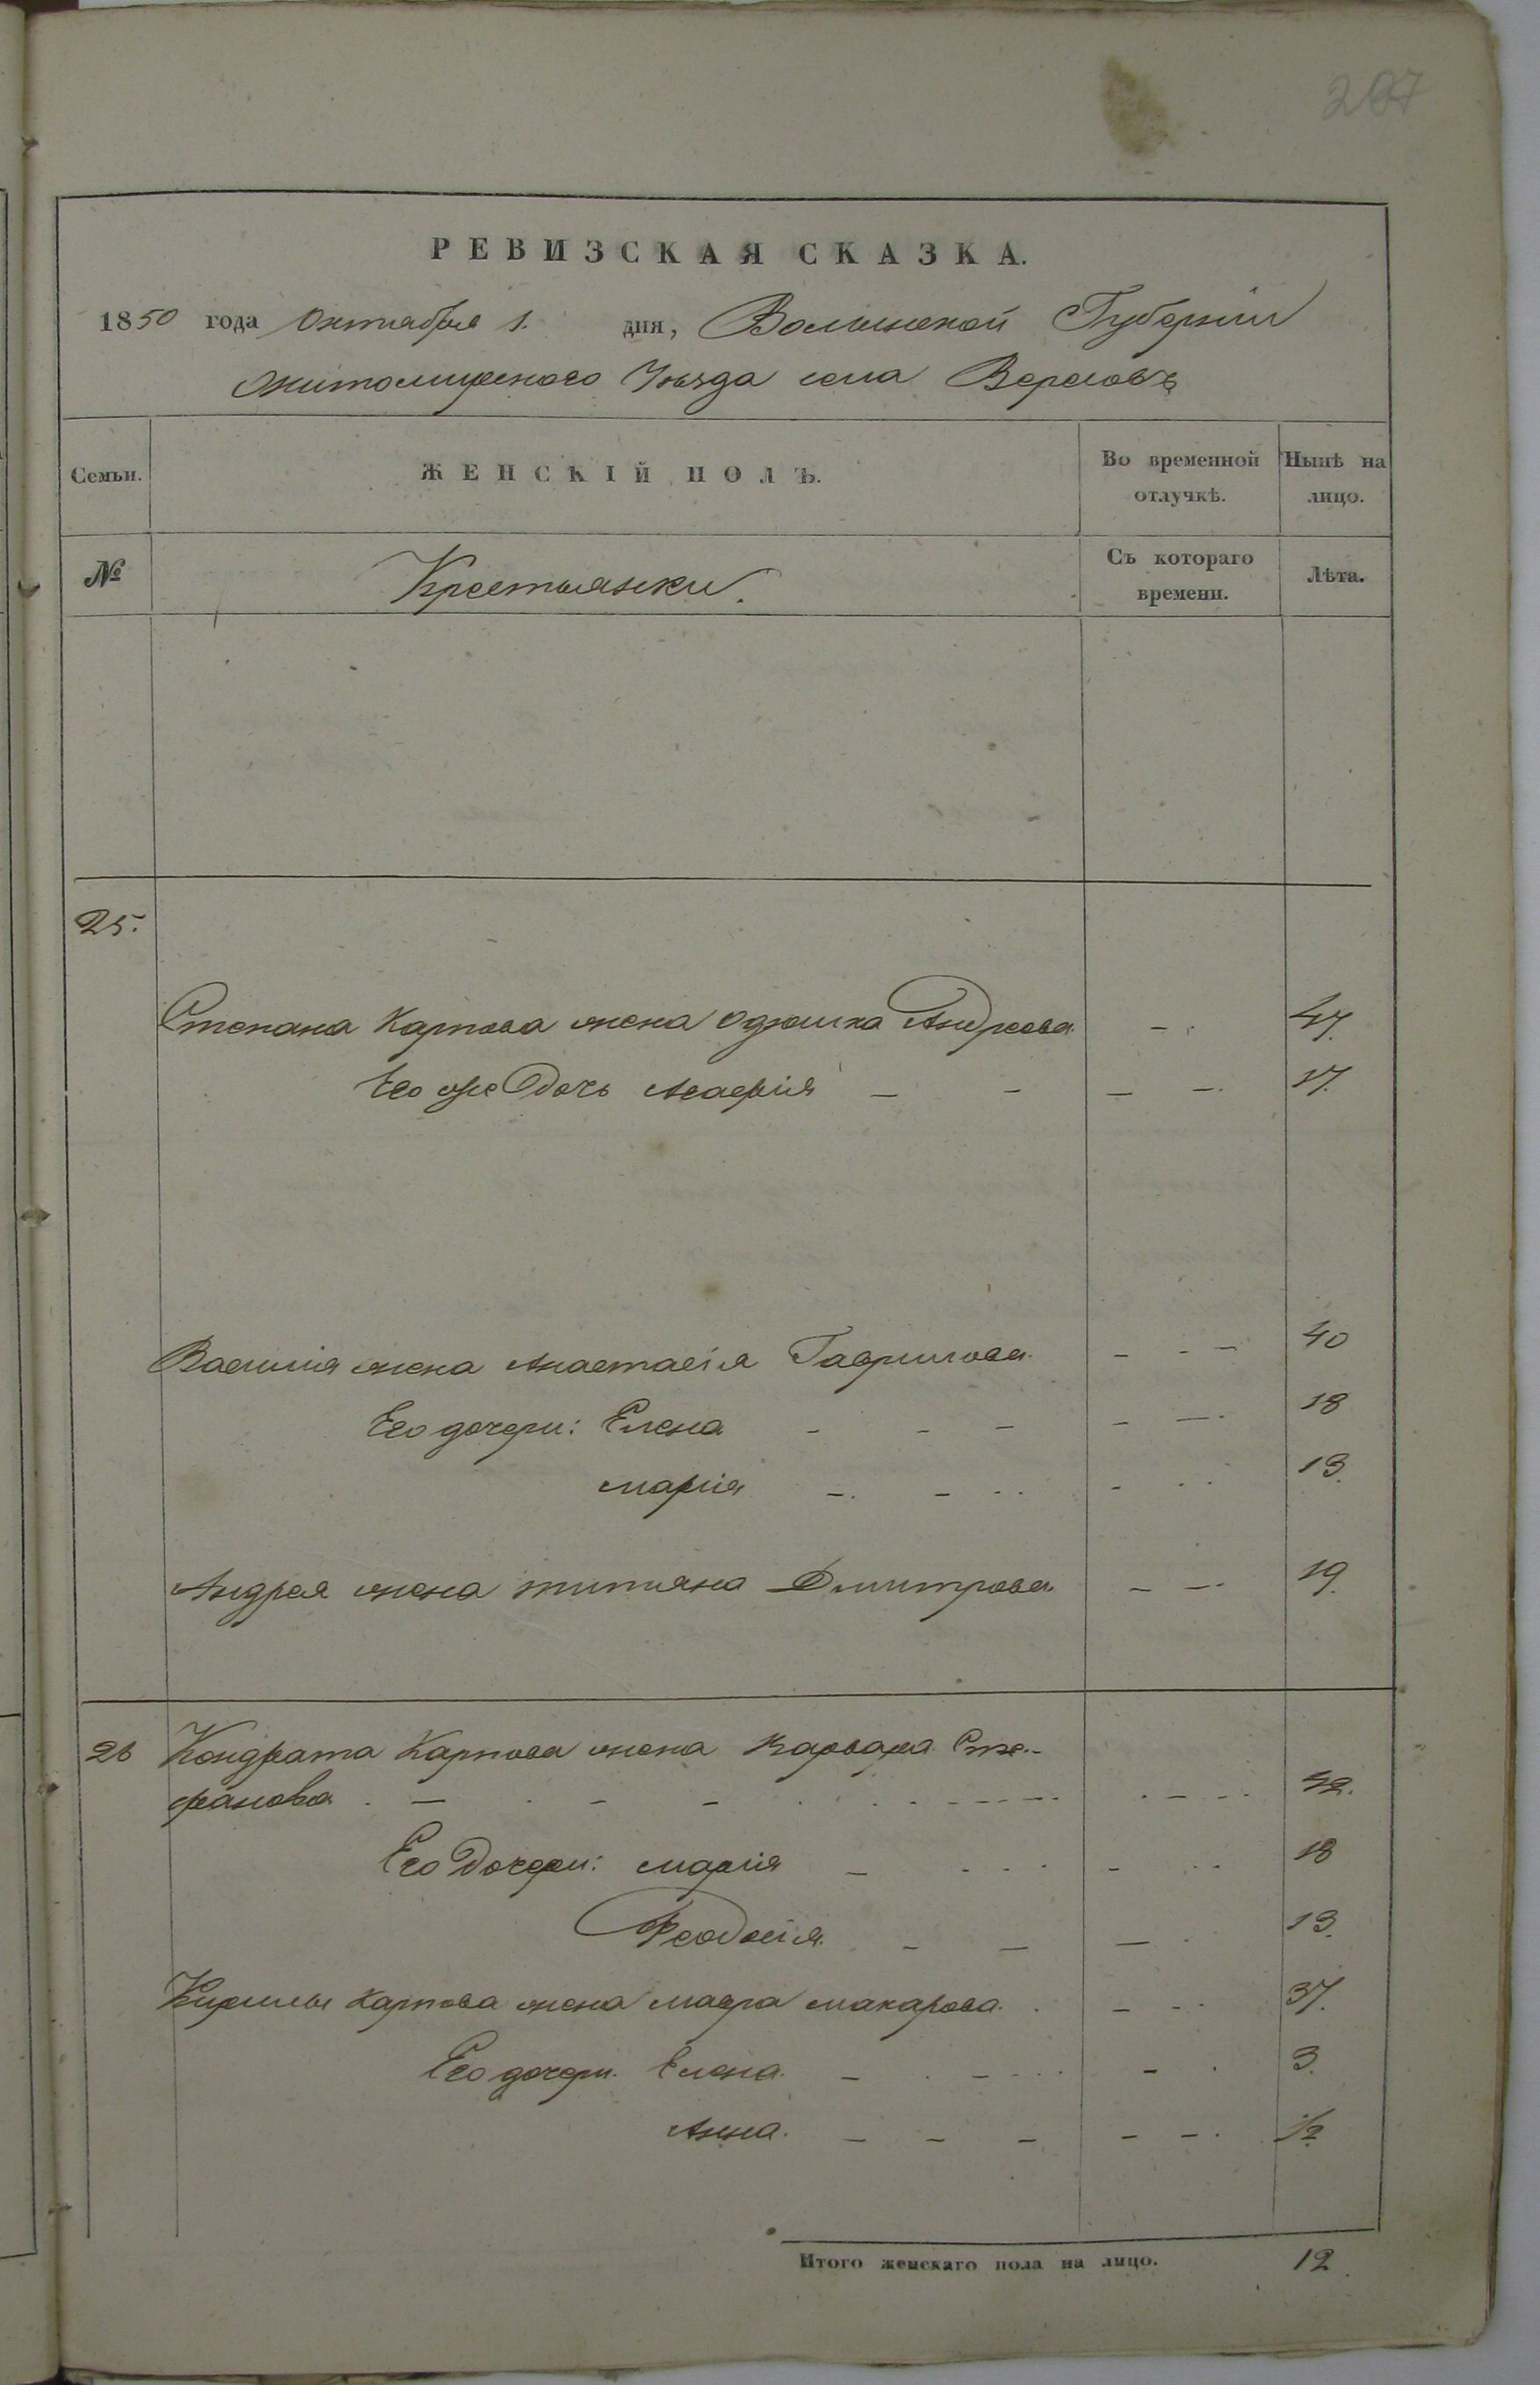 207
РЕВИЗСКАЯ СКАЗКА.
1850 года Октября 1. дня, Волынской Губернии
Житомирского Уѣзда села Вересовъ
Семьи. ЖЕНСКІЙ ПОЛЪ. Во временной отлучкѣ. Нынѣ на лицо.
№ Крестьянки. Съ котораго времени. Лѣта.
25.
Степана Карпова жена Одюшка Андреева - . 47.
Его же Дочь Агафія — - — -. 17.
Василія жена Анастасія Гаврилова - - - 40
Его дочери: Елена - - - - —. 18
марія -. - .. - .. 13.
Андрея жена татияна Дмитрова - —. 19.
26 Кондрата Карпова жена Варвара Сте-
фанова . — . - - 42.
Его Дочери: марія — - .. 18
Феодосія. - — — . 13.
Кирилы Карпова жена мавра макарова. . - - . 37.
Его дочери. Елена. — . - - . 3.
Анна. — - - - - . 1/2
Итого женскаго пола на лицо. 12.